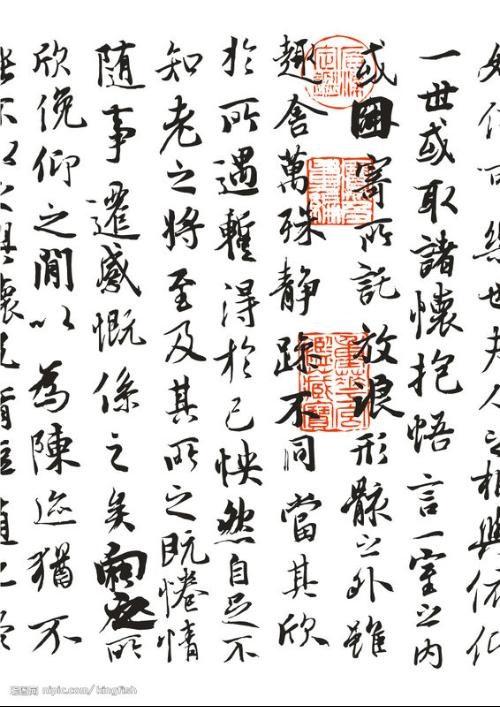 娱信可樂也夫人之相與俯仰
一世或取諸懷抱悟言一室之内
或因寄所託放浪形骸之外雖
趣舍萬殊静躁不同當其欣
於所遇蹔得於己怏然自足不
知老之將至及其所之既惓情
随事遷感慨係之矣向之所
欣俛仰之閒以為陳迹猶不
不以之興懷況脩短隨化
昵图网 nipic.com/kingfish